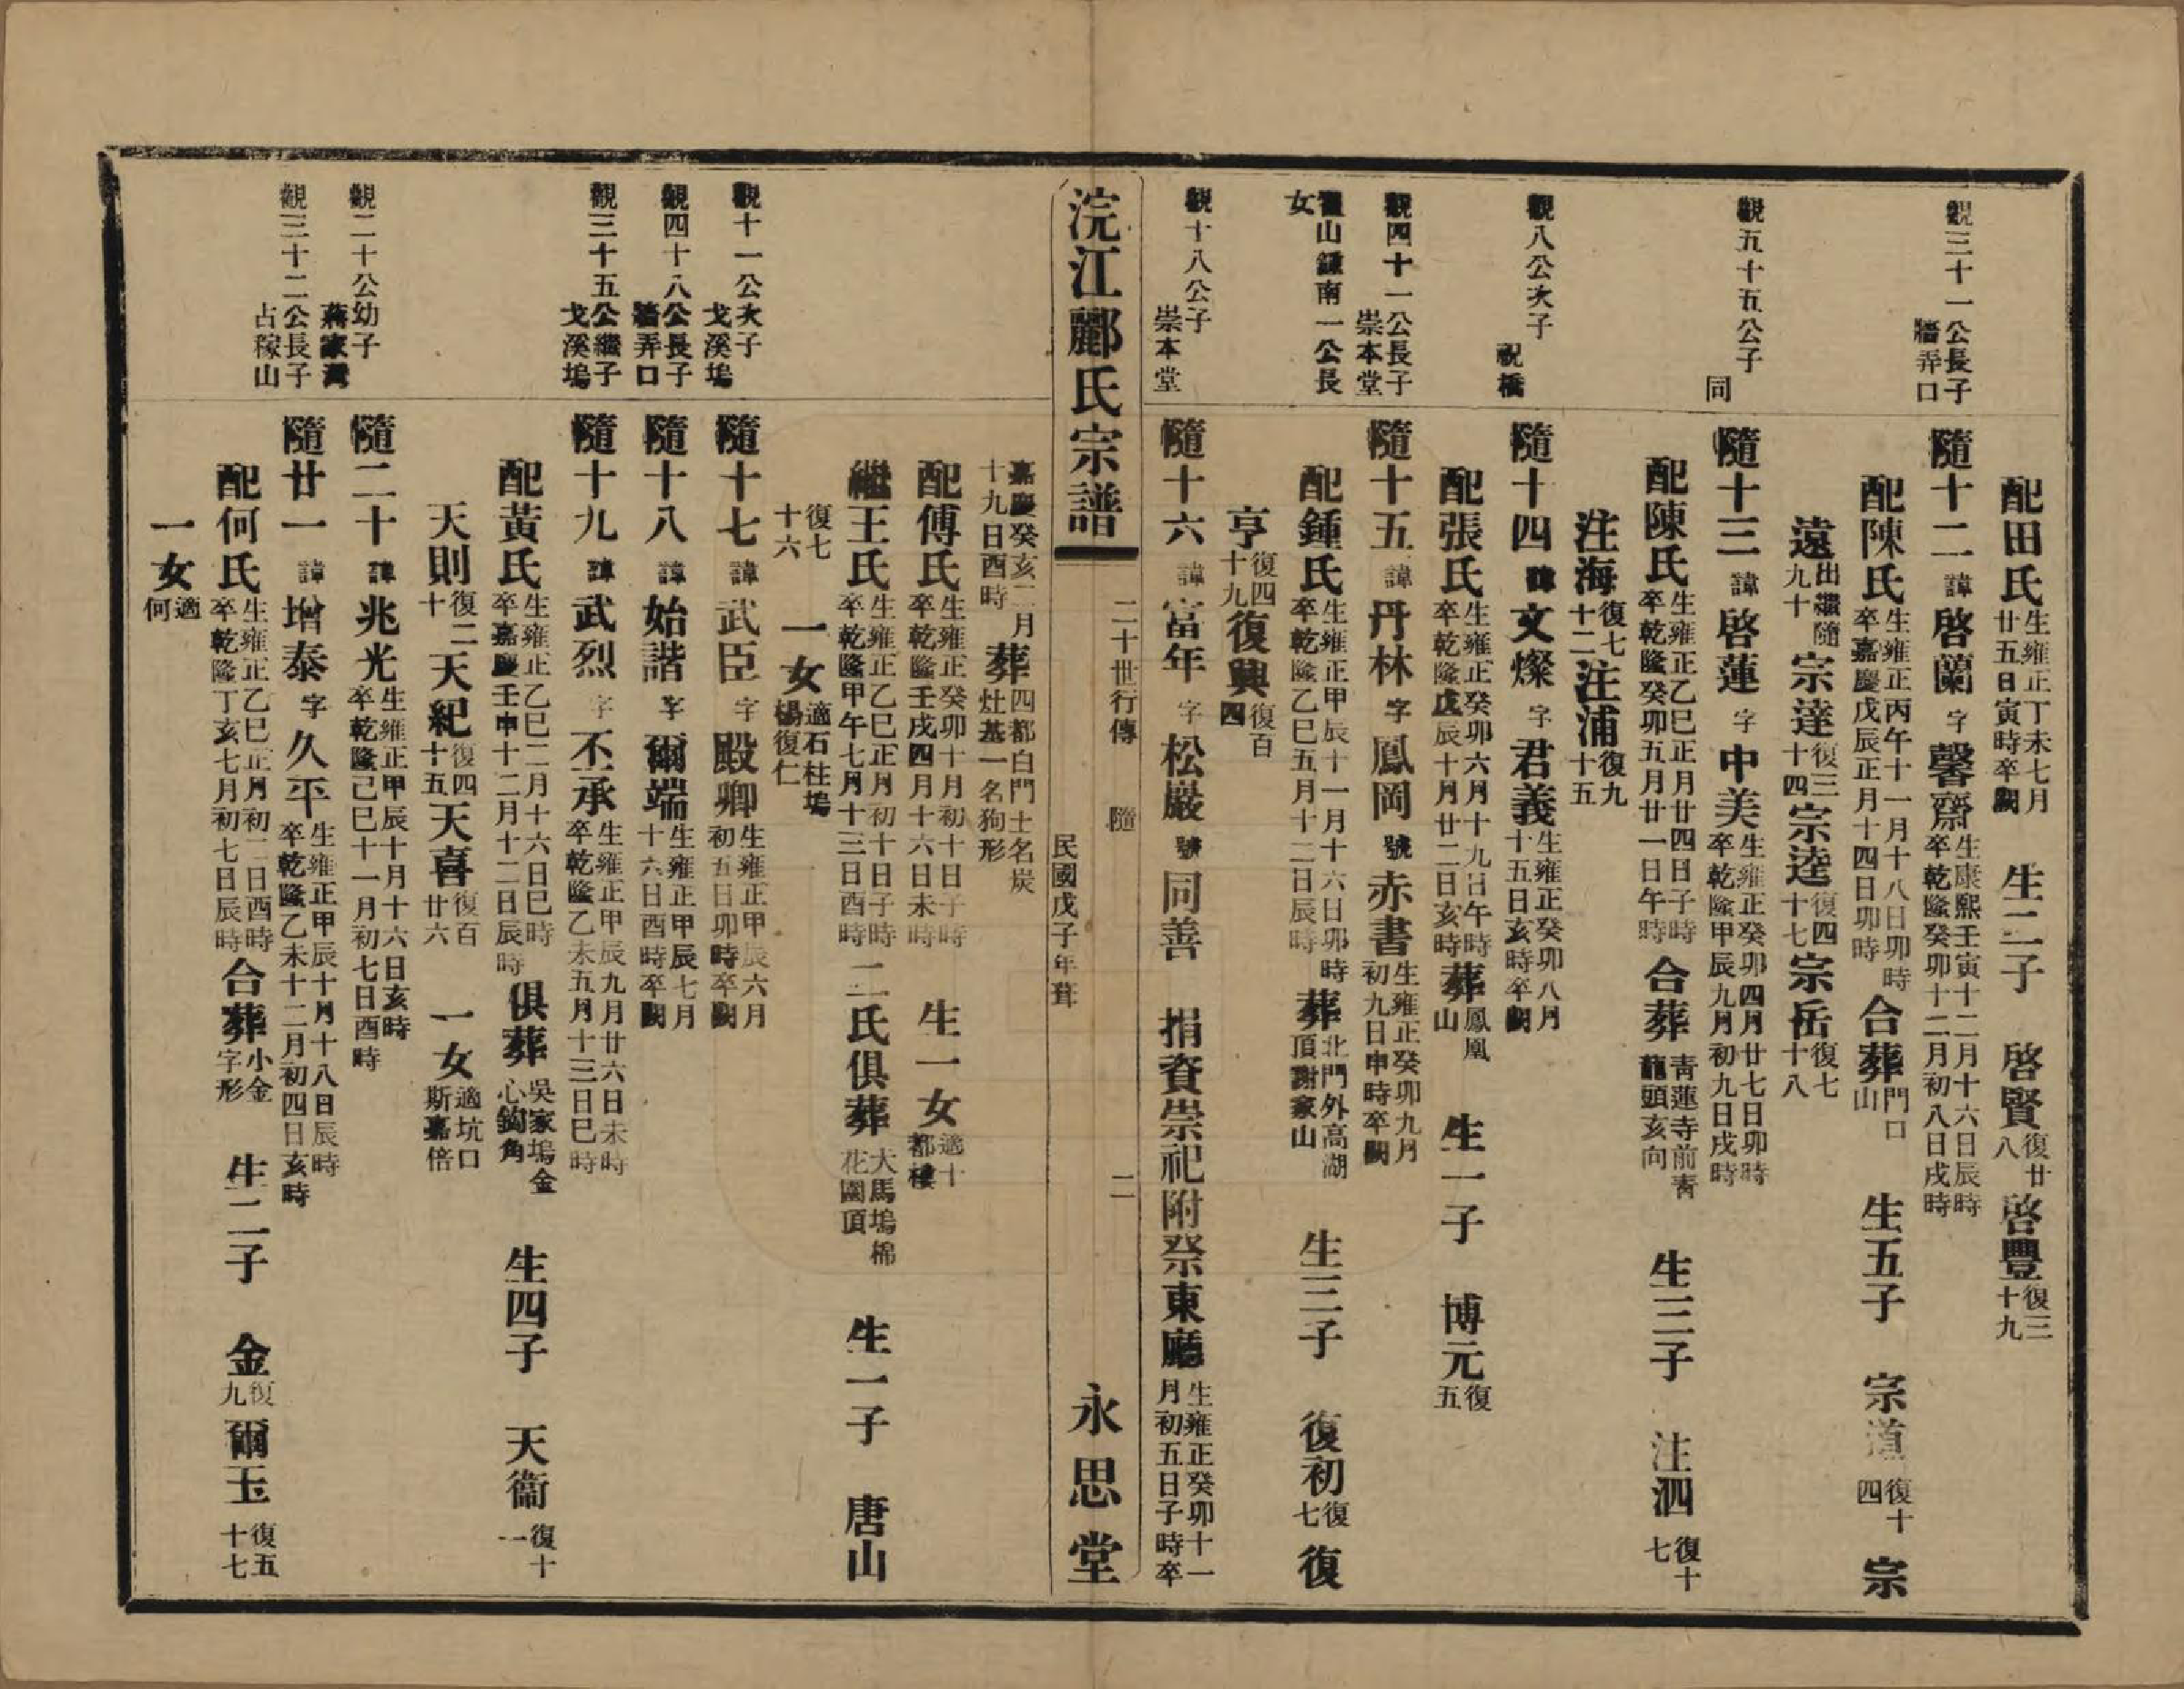 配田氏 生雍正丁未七月廿五日寅時卒闕 生二子 啓賢 復廿八 啓豐 復三十九
觀三十一公長子 牆弄口
隨十二 諱 啓蘭 字 馨齋 生康熙壬寅十二月十六日辰時卒乾隆癸卯十二月初八日戌時
配陳氏 生雍正丙午十一月十八日卯時卒嘉慶戊辰正月十四日卯時 合葬 門口山 生五子 宗道 復十四 宗
遠 出繼隨九十 宗達 復三十四 宗逵 復四十七 宗岳 復七十八
觀五十五公子 同
隨十三 諱 啓蓮 字 中美 生雍正癸卯四月廿七日卯時卒乾隆甲辰九月初九日戌時
配陳氏 生雍正乙巳正月廿四日子時卒乾隆癸卯五月廿一日午時 合葬 青蓮寺前青龍頭亥向 生三子 注泗 復十七
注海 復七十二 注浦 復九十五
觀八公次子 祝橋
隨十四 諱 文燦 字 君義 生雍正癸卯八月十五日亥時卒闕
配張氏 生雍正癸卯六月十九日午時卒乾隆戊辰十月廿二日亥時 葬 鳳凰山 生一子 博元 復五
觀四十一公長子 崇本堂
隨十五 諱 丹林 字 鳳岡 號 赤書 生雍正癸卯九月初九日申時卒闕
山鍾南一公長女
配鍾氏 生雍正甲辰十一月十六日卯時卒乾隆乙巳五月十二日辰時 葬 北門外高湖頂謝家山 生三子 復初 復七 復
亨 復四十九 復興 復百四
觀十八公子 崇本堂
隨十六 諱 富年 字 松嚴 號 同善 捐資崇祀附祭東廳 生雍正癸卯十一月初五日子時卒
浣江酈氏宗譜 二十世行傳 隨 二 民國戊子年葺 永思堂
嘉慶癸亥二月十九日酉時 葬 四都白門土名炭灶基一名狗形
配傅氏 生雍正癸卯十月初十日子時卒乾隆壬戌四月十六日未時 生一女 適十都樓
繼王氏 生雍正乙巳正月初十日子時卒乾隆甲午七月十三日酉時 二氏俱葬 大馬塢棉花園頂 生一子 唐山
復七十六 一女 適石柱塢楊復仁
觀十一公次子 戈溪塢
隨十七 諱 武臣 字 殿卿 生雍正甲辰六月初五日卯時卒闕
觀四十八公長子 牆弄口
隨十八 諱 始諧 字 爾端 生雍正甲辰七月十六日酉時卒闕
觀三十五公繼子 戈溪塢
隨十九 諱 武烈 字 丕承 生雍正甲辰九月廿六日未時卒乾隆乙未五月十三日巳時
配黃氏 生雍正乙巳二月十六日巳時卒嘉慶壬申十二月十二日辰時 俱葬 吳家塢金心鈎角 生四子 天衞 復十一
天則 復二十 天紀 復四十五 天喜 復百廿六 一女 適坑口斯嘉倍
觀二十公幼子 蔣家灣
隨二十 諱 兆光 生雍正甲辰十月十六日亥時卒乾隆己巳十一月初七日酉時
觀三十二公長子 占稼山
隨廿一 諱 增泰 字 久平 生雍正甲辰十月十八日辰時卒乾隆乙未十二月初四日亥時
配何氏 生雍正乙巳正月初二日酉時卒乾隆丁亥七月初七日辰時 合葬 小金字形 生二子 金 復九 爾玉 復五十七
一女 適何